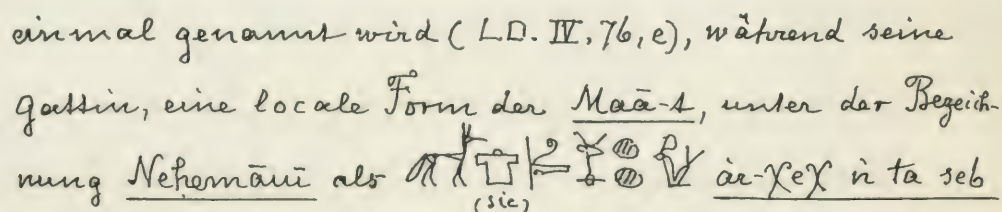 einmal genannt wird (LD. IV, 76, e), während seine
Gattin, eine locale Form der Maā-t, unter der Bezeich-
nung Nehemāuï als (sic) àr-χeχ ǹ ta seb